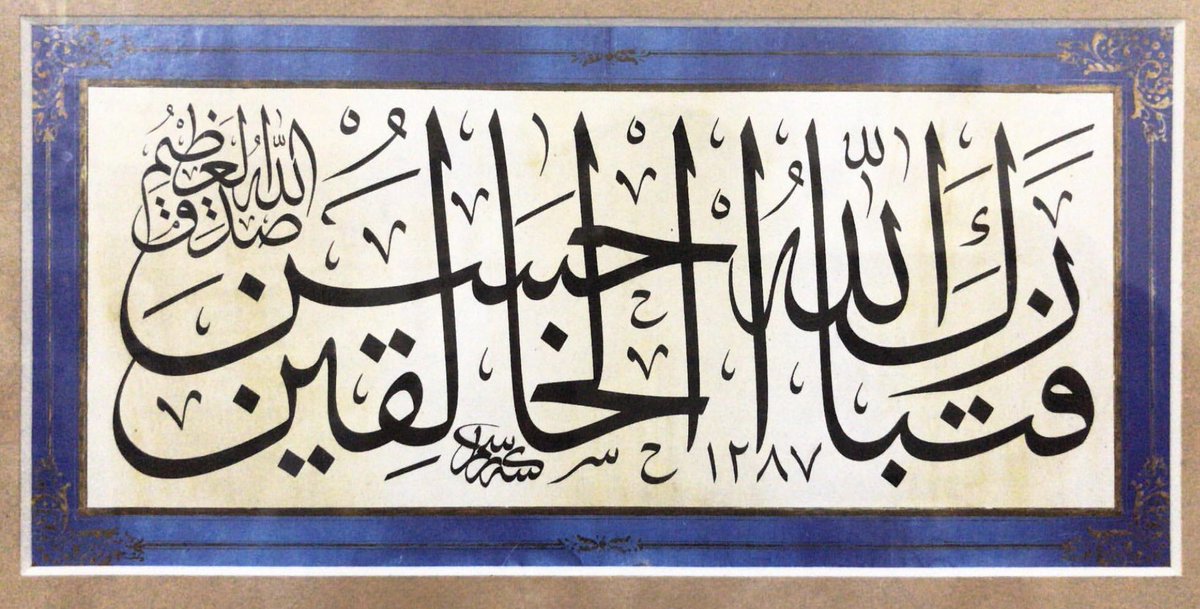 فتبارك الله احسن الخالقين
صدق الله العظيم
١٢٨٧